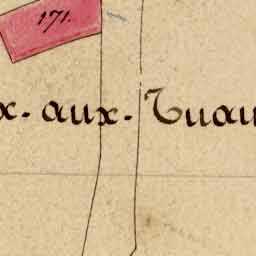 171.
x-aux-Tuau